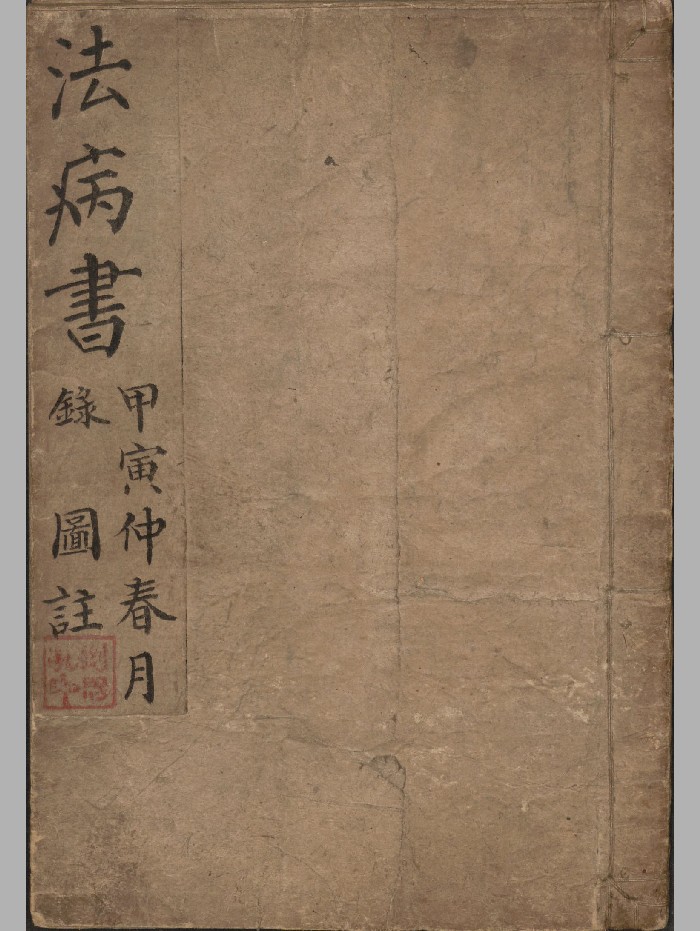 甲寅仲春月
法病書
錄圖註